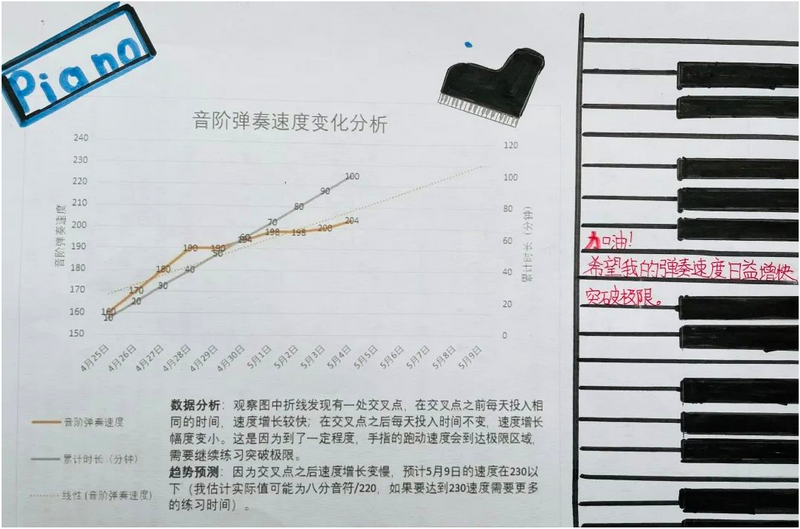 Piano
音阶弹奏速度变化分析
240
230
220
210
200
190
180
170
160
150
音阶弹奏速度
120
100
80
60
40
20
0
累计时长（分钟）
160
170
180
190
190
194
198
198
200
204
10
20
30
40
50
60
70
80
90
100
4月25日
4月26日
4月27日
4月28日
4月29日
4月30日
5月1日
5月2日
5月3日
5月4日
5月5日
5月6日
5月7日
5月8日
5月9日
音阶弹奏速度
累计时长（分钟）
线性 (音阶弹奏速度)
数据分析：观察图中折线发现有一处交叉点，在交叉点之前每天投入相
同的时间，速度增长较快；在交叉点之后每天投入时间不变，速度增长
幅度变小。这是因为到了一定程度，手指的跑动速度会到达极限区域，
需要继续练习突破极限。
趋势预测：因为交叉点之后速度增长变慢，预计5月9日的速度在230以
下（我估计实际值可能为八分音符/220，如果要达到230速度需要更多
的练习时间）。
加油！
希望我的弹奏速度日益增快
突破极限。